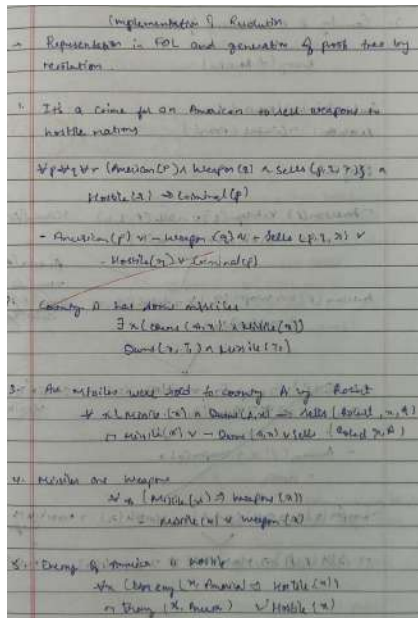 Implementation of Resolution
→ Representation in FOL and generation of proof tree by
resolution.
1. It's a crime for an American to sell weapons to
hostile nations
∀p ∀q ∀r (American(p) ∧ Weapon(q) ∧ Sells(p, q, r) ∧
Hostile(r) → Criminal(p)
¬ American(p) ∨ ¬ Weapon(q) ∨ ¬ Sells(p, q, r) ∨
¬ Hostile(r) ∨ Criminal(p)
Country A has some missiles
∃x (Owns(A, x) ∧ Missile(x))
Missile(T₁)
3. All missiles were sold to country A by Robert
∀x (Missile(x) ∧ Owns(A, x) → Sells (Robert, x, A)
¬ Missile(x) ∨ ¬ Owns(A, x) ∨ Sells (Robert, x, A)
4. Missiles are weapons
∀x (Missile(x) → Weapon(x))
¬ Missile(x) ∨ Weapon(x)
5. Enemy of America is hostile
∀x (Enemy(x, America) → Hostile(x))
¬ Enemy (x, America) ∨ Hostile(x)